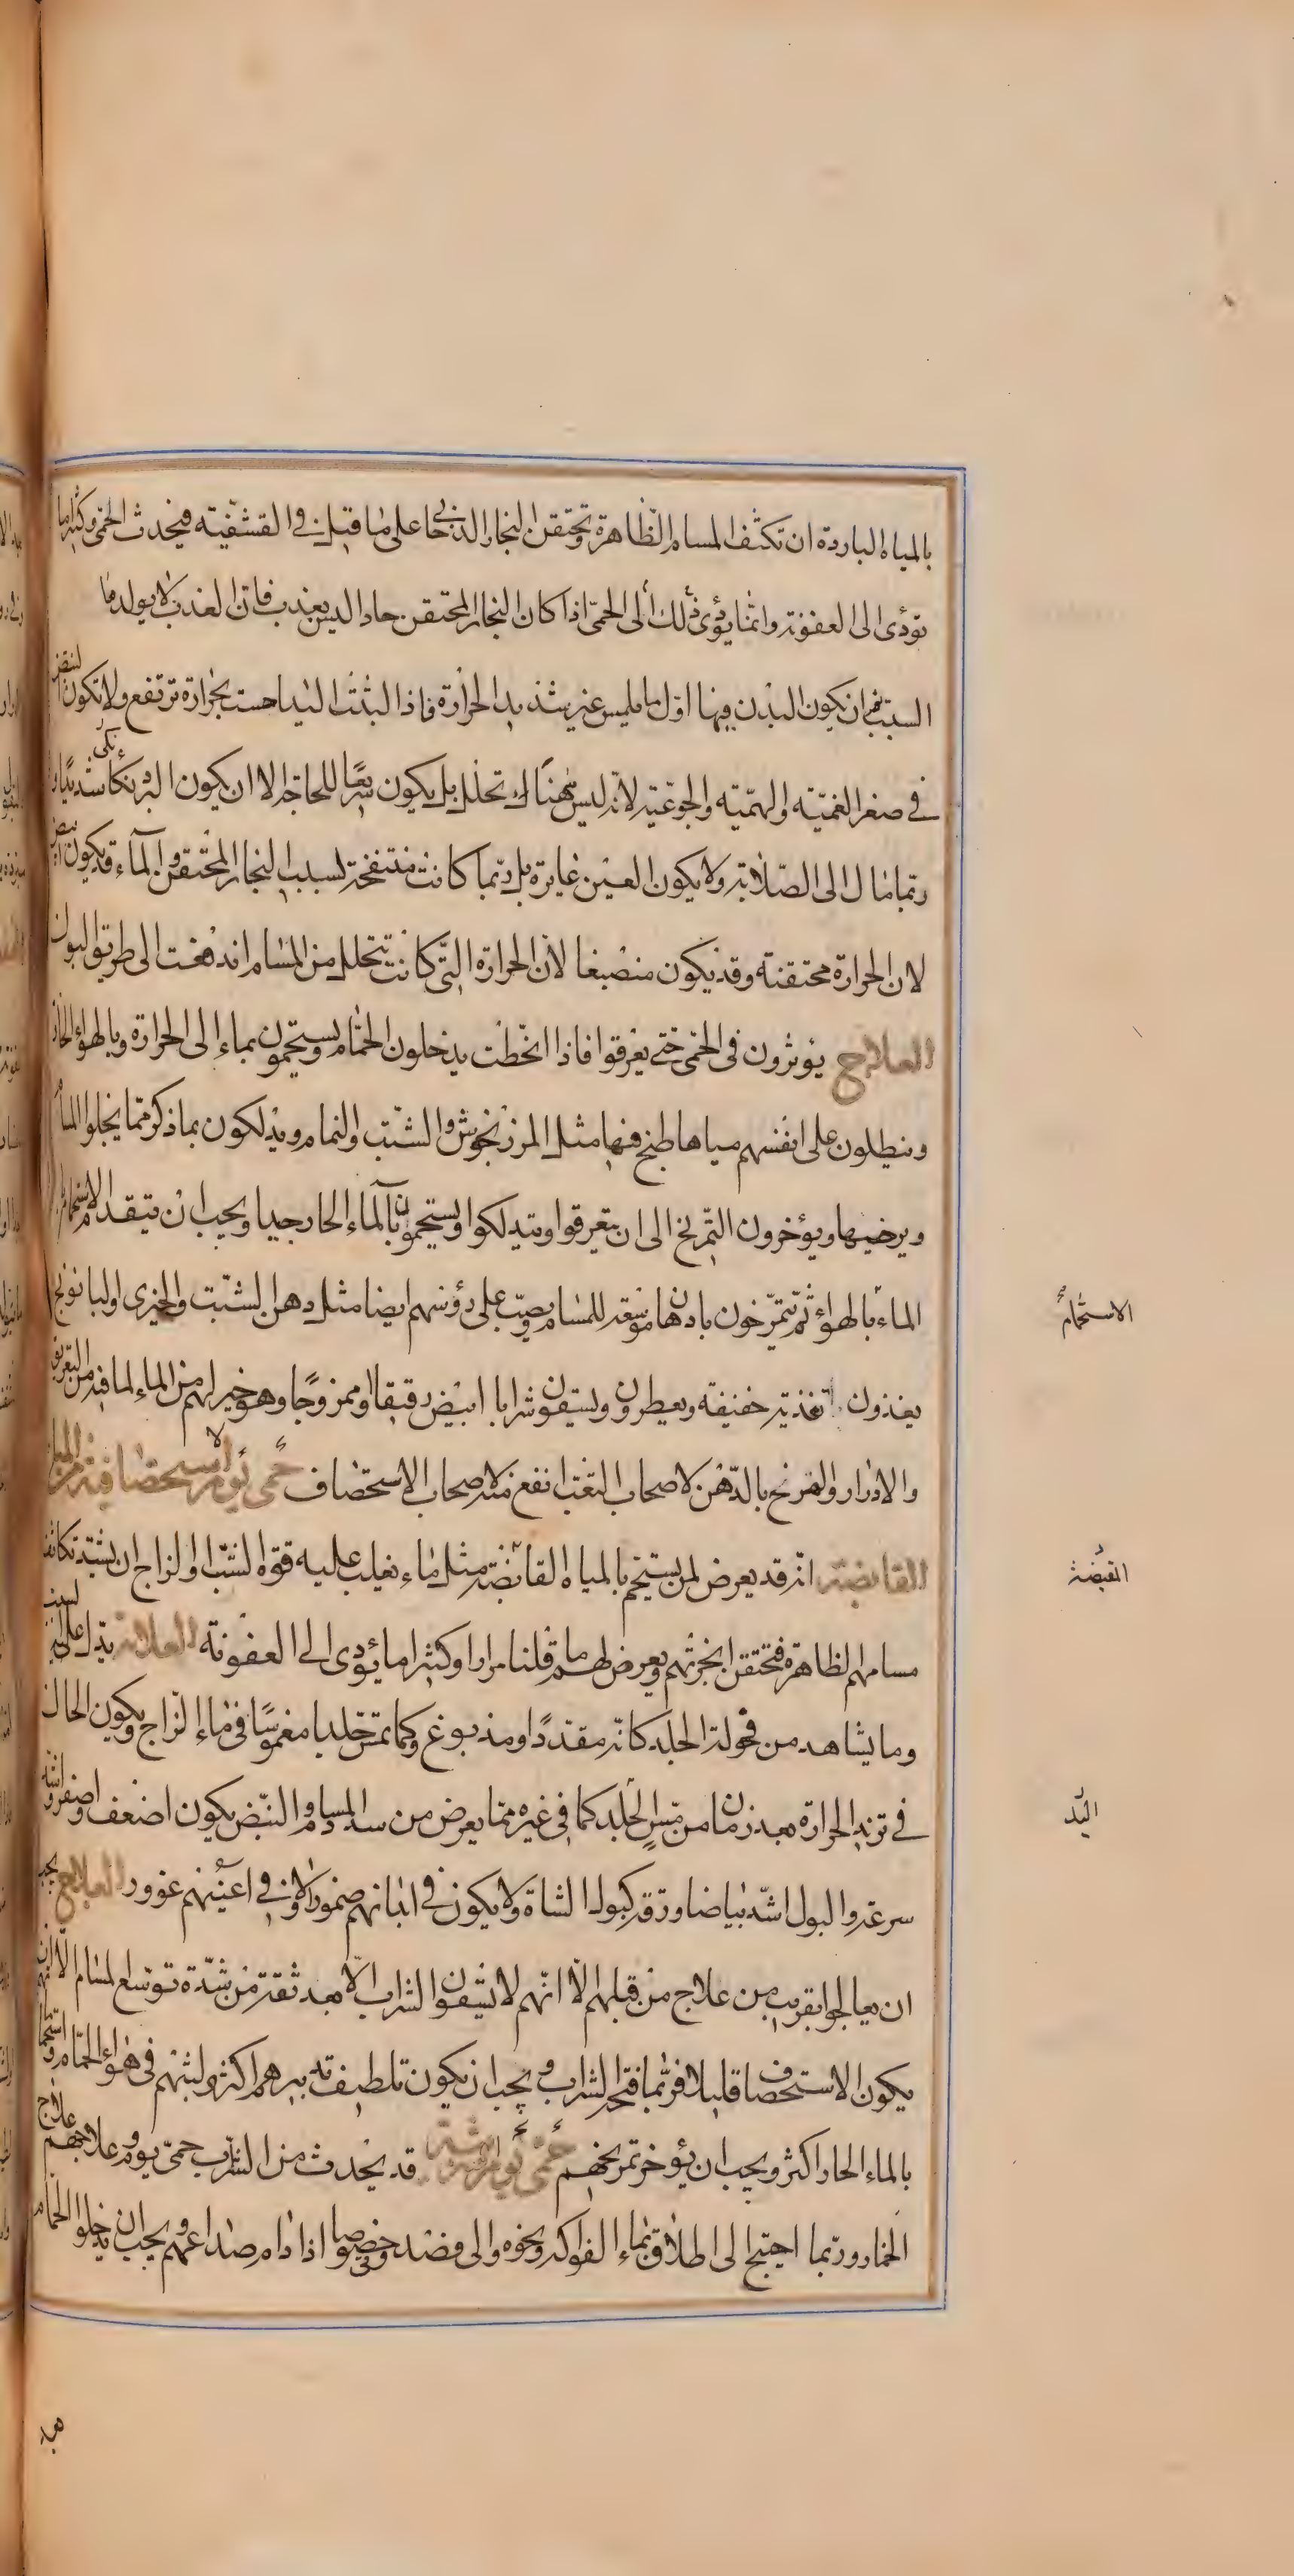 بالمياه الباردة ان تكثف المسام الظاهرة وتحتقن البخار الدخاني على ما قيل في القشفية فيحدث الحمى وكثيرا ما
تؤدى الى العفونة وانما يؤدى ذلك الى الحمى اذا كان البخار المحتقن حادا ليس بعذب فان العذب لا يولد ما
السبب ان يكون البدن فيها اول ما يلمس غير شديد الحرارة فاذا البثت اليد احست بحرارة ترتفع ولا تكون النبض
في صغر الغمية والهمية والجوعية لانه ليس هناك تحلل بل يكون سريعا للحاجة الا ان يكون البرد نكأ شديدا و
ربما مال الى الصلابة ولا يكون العين غايرة بل ربما كانت منتفخة بسبب البخار المحتقن والماء قد يكون ابيض
لان الحرارة محتقنة وقد يكون منصبغا لان الحرارة التي كانت تتحلل من المسام اندفعت الى طريق البول
العلاج يوثرون في الحمى حتى يعرقوا فاذا انحطت يدخلون الحمام ويستحمون بماء الى الحرارة وبالهواء الحار
وينطلون على انفسهم مياها طبخ فيها مثل المرزنجوش والشبت والنمام ويدلكون بما ذكر مما يجلوا المسام
ويرخيها ويؤخرون التمريخ الى ان يتعرقوا ويتدلكوا ويستحمون بالماء الحار جيدا ويجب ان يتقدم الاستحمام
الماء بالهواء ثم يتمرخون بادهان موسعة للمسام ويصب على رؤسهم ايضا مثل دهن الشبت والخيرى والبابونج
يغذون تغذية خفيفة ويعطرون ويسقون شرابا ابيض رقيقا او ممزوجا وهو خير لهم من الماء لما فيه من التعريق
والادرار والتمريخ بالدهن لاصحاب التعب انفع منه لاصحاب الاستحصاف حمى يوم استحصافية من المياه
القابضة انه قد يعرض لمن يستحم بالمياه القابضة مثل ماء يغلب عليه قوة الشب او الزاج ان يشتد تكاثف
مسامهم الظاهرة فتحتقن ابخرتهم ويعرض لهم ما قلنا مرارا وكثيرا ما يؤدى الى العفونة العلامة يدل عليه السبب
وما يشاهد من قحولة الجلد كانه مقدد او مدبوغ وكما تمس جلدا مغموسا في ماء الزاج ويكون الحال
في تزيد الحرارة بعد زمان ما من مس الجلد كما في غيره مما يعرض من سد المسام والنبض يكون اضعف واصغر واشد
سرعة والبول اشد بياضا ورقة كبول الشاة ولا يكون في ابدانهم ضمور ولا في اعينهم غوور العلاج يجب
ان يعالجوا بقريب من علاج من قبلهم الا انهم لا يسقون الشراب الا بعد ثقة من شدة توسع المسام الا ان
يكون الاستحصاف قليلا فربما فتحه الشراب ويجب ان يكون تلطيف تدبيرهم اكثر ولبثهم في هواء الحمام واستحمامهم
بالماء الحار اكثر ويجب ان يؤخر تمريخهم حمى يوم شربية قد يحدث من الشراب حمى يوم وعلاجهم علاج
الخمار وربما احتيج الى اطلاق بماء الفواكه ونحوه والى فصد وخصوصا اذا دام صداعهم ويجب ان يدخلوا الحمام
الاستحمام
القبضة
اليد
بعد